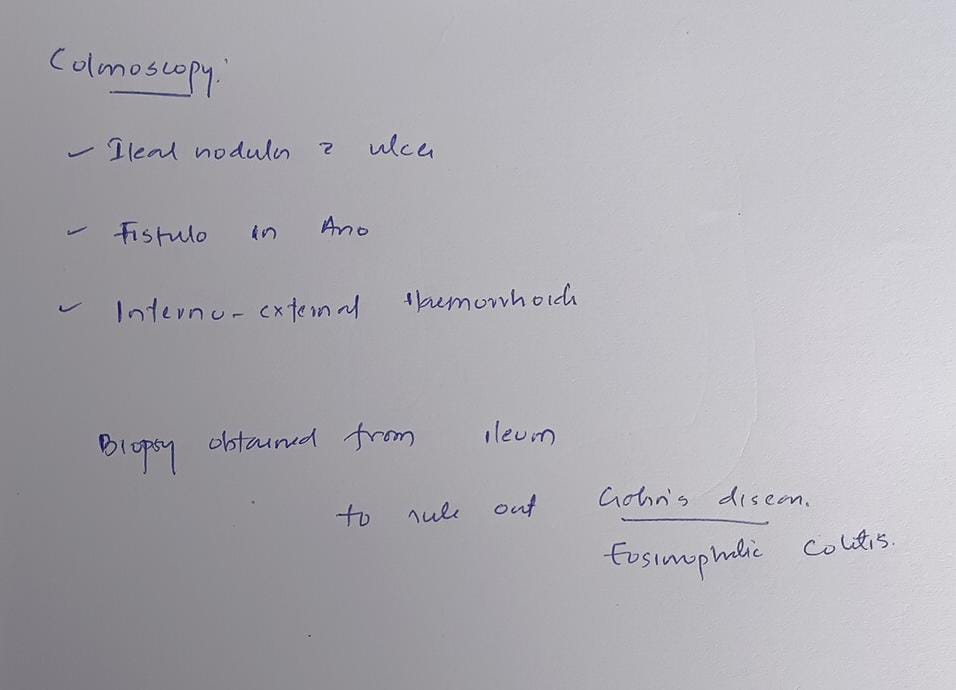 Colonoscopy:
Ileal nodular ? ulcer
Fistula in Ano
Interno-external Haemorrhoids
Biopsy obtained from ileum
to rule out Crohn's disease.
Eosinophilic Colitis.